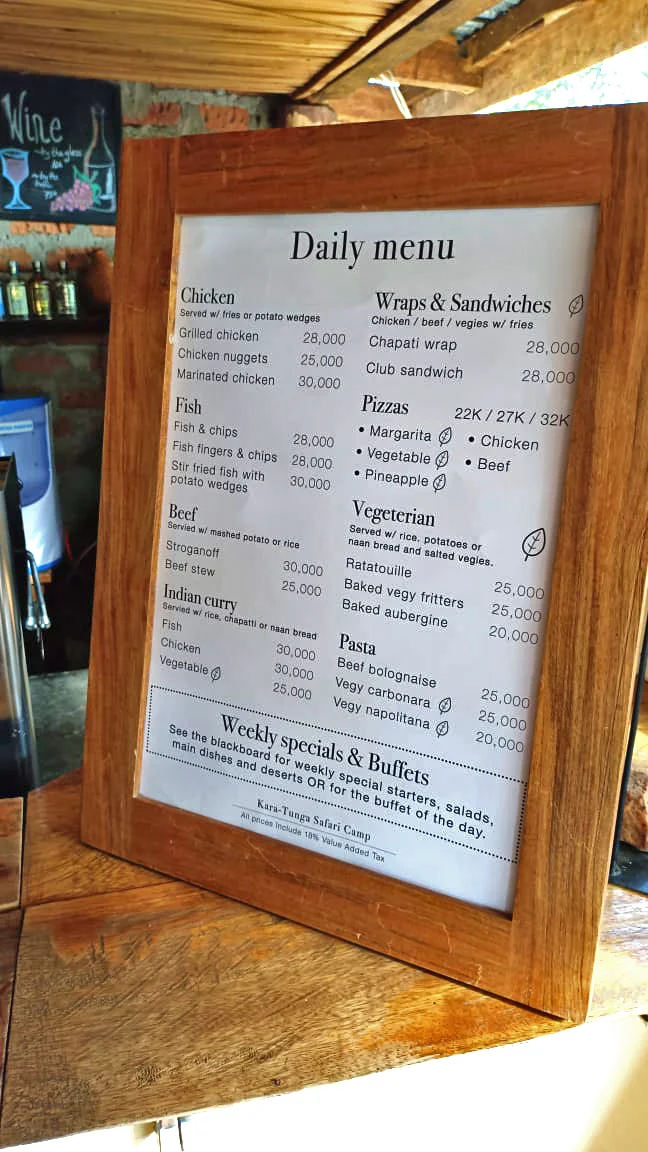 Wine
Daily menu
Chicken
Served w/ fries or potato wedges
Grilled chicken 28,000
Chicken nuggets 25,000
Marinated chicken 30,000
Fish
Fish & chips 28,000
Fish fingers & chips 28,000
Stir fried fish with
potato wedges 30,000
Beef
Servied w/ mashed potato or rice
Stroganoff 30,000
Beef stew 25,000
Indian curry
Servied w/ rice, chapatti or naan bread
Fish 30,000
Chicken 30,000
Vegetable 25,000
Wraps & Sandwiches
Chicken / beef / vegies w/ fries
Chapati wrap 28,000
Club sandwich 28,000
Pizzas 22K / 27K / 32K
• Margarita • Chicken
• Vegetable • Beef
• Pineapple
Vegeterian
Served w/ rice, potatoes or
naan bread and salted vegies.
Ratatouille 25,000
Baked vegy fritters 25,000
Baked aubergine 20,000
Pasta
Beef bolognaise 25,000
Vegy carbonara 25,000
Vegy napolitana 20,000
Weekly specials & Buffets
See the blackboard for weekly special starters, salads,
main dishes and deserts OR for the buffet of the day.
Kara-Tunga Safari Camp
All prices Include 18% Value Added Tax